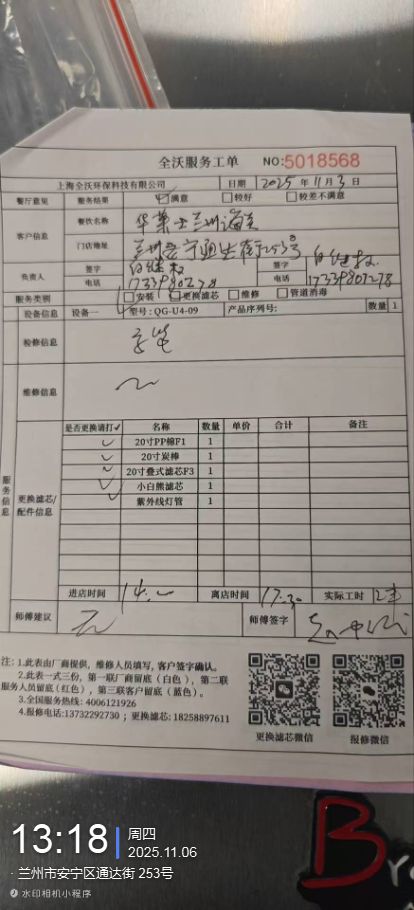 全沃服务工单 NO:5018568
上海全沃环保科技有限公司 日期 2025 年 11 月 3 日
餐厅意见 服务结果 ☑满意 □较好 □较差不满意
客户信息 餐饮名称 华莱士兰州
门店地址 兰州安宁通达街253号
负责人 签字 签字
电话 17339807278 电话 17339807278
服务类别 □安装 □更换滤芯 □维修 □管道消毒
设备信息 设备一 型号: QG-U4-09 产品序列号: 数量 1
检修信息
维修信息
服务信息
更换滤芯/配件信息
是否更换请打✓ 名称 数量 单价 合计 备注
✓ 20寸PP棉F1 1
✓ 20寸炭棒 1
✓ 20寸叠式滤芯F3 1
✓ 小白熊滤芯 1
✓ 紫外线灯管 1
进店时间 离店时间 17.30 实际工时
师傅建议 无 师傅签字
注: 1.此表由厂商提供, 维修人员填写, 客户签字确认。
2.此表一式三份, 第一联厂商留底(白色), 第二联
服务人员留底(红色), 第三联客户留底(蓝色)。
3.全国服务热线: 4006121926
4.报修电话:13732292730 ; 更换滤芯: 18258897611
更换滤芯微信 报修微信
B
13:18 周四
2025.11.06
· 兰州市安宁区通达街 253号
水印相机小程序